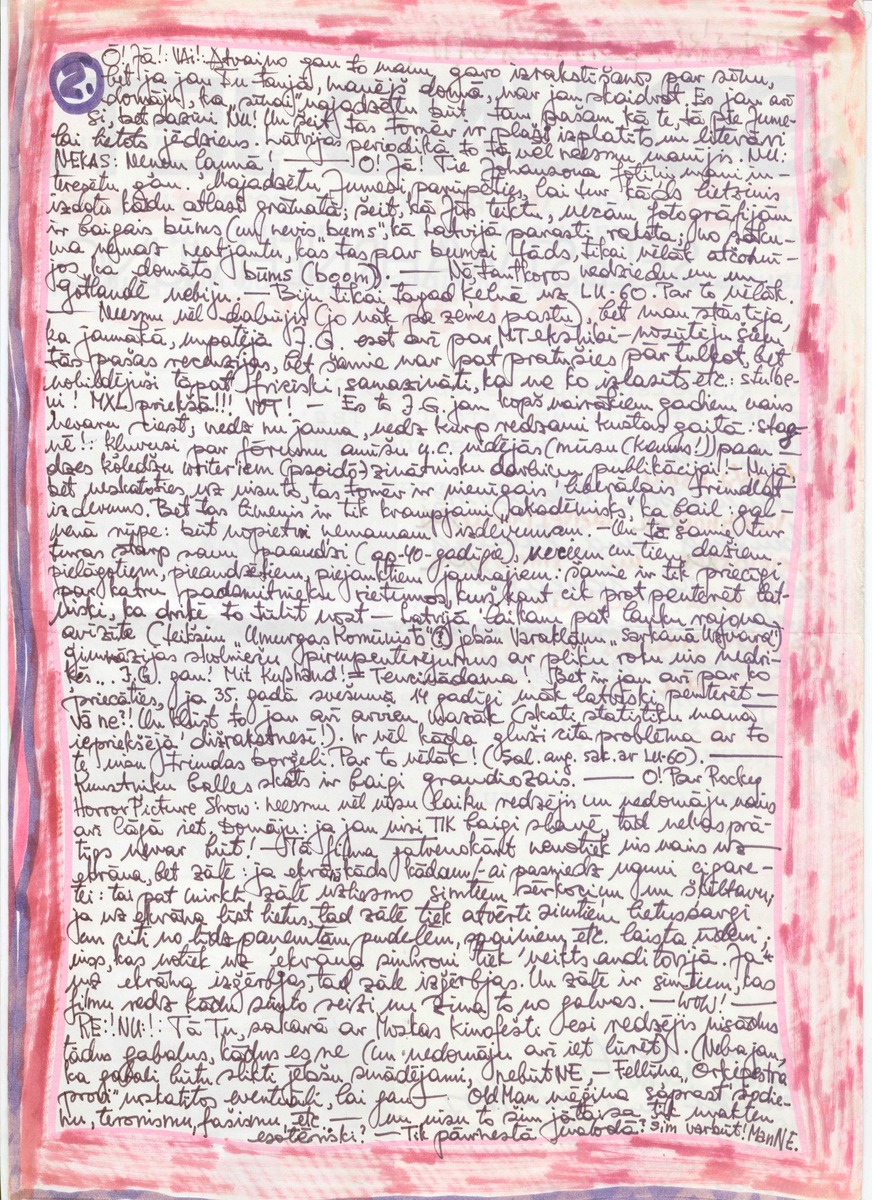 2.
Ō! Jā!: VAi! Atvaino gan to manu garo izrakstīšanos par sūnu,
bet ja jau Tu tanjā, manējā domā, var jau skaidrot. Es jau arī
domāju, ka "sūnai" vajadzētu būt tām pašam kā te, tā pie Jums
Bet Nu! Un šeit tas tomēr ir plaši izplatīts un literāri
lai lietots jēdziens. Latvijas periodikā to tā vēl neesmu manījis. NU:
NEKAS: Nenem ļaunā! — O! Jā! Tie Johansona
teresētu gan. Vajadzētu Jumedi papūpēties, lai tur kāds lietninis
izdotu kādu atlasi grāmatā; šeit, kā Jūs teiktu, vecām fotogrāfijām
ir baigais būms (un nevis "bums", kā Latvijā parasti raksta; no sāku-
ma nemaz neatjautu, kas tas par bumsi tāds, tikai vēlāk atšķū-
jos, ka domāts būms (boom). — Nē, Tanfloros nedziedu un
gotlandē nebiju. — Biju tikai tagad Ķelnē uz LU-60 Par to vēlāk.
— Neesmu vēl dabūjis (jo nāk pa zemes pastu), bet man stāstīja,
ka jaunākā, numpatējā J.G. esot arī par MT
tās pašas recenzijas, bet šamie var pat pratušies pārtulkot, bet
nobildējuši tāpat friziski, samazināti, ka ne ko izlasīt etc.: stulbe-
ņi! MXL priekšā!!! VOT! — Es to J.G. jau kopš vairākiem gadiem vairs
nevaru ciest; nedz nu jauna, nedz kurp redzami kustas gaitā: stag-
nē!: kļuvusi par fōrumu amīšu u.c. vidējās (mūsu (Kauns!)) paau-
dzes koledžu writeriem (pseido) zinātnisku darbiņu publikācijai! — Nujā,
bet neskatoties uz visu to, tas tomēr ir vienīgais liberālais trimdlat
izdevums. Bet tas līmenis ir tik krampjaini akadēmisks, ka bail: gal-
venā rūpe: būt nopietni ņemamam izdevumam. — Un tā šamie tur
turas starp savu paaudzi (ap-40-gadīgie), večiem un tiem dažiem
pielāgotiem, pieaudzētiem, piejauktiem jaunajiem: šamie ir tik priecīgi
par katru padsmitnieku rietumos, kurš kaut cik prot penterēt lat-
viski, ka drukā to tūlīt nost — Latvijā laikam pat lauku rajona
avīzīte (teiksim "Umurgas Komūnists"(?) jebšu Varakļānu "Sarkanā Ugvara")
ģimnāzijas skolnieču pirmpenterējumus ar pliku roku vis nedru-
kās... J.G. gan! Mit Kußhand! = Tencinādama! Bet ir jau arī par ko
priecāties, ja 35. gadā svešumā 14 gadīgi māk latviski penterēt —
Vā ne?! Un kļūst to jau arī arvien mazāk (skati statistiku manā
iepriekšējā dižrakstnesī!). Ir vēl kāda gluži cita problēma ar to
te visu trimdas Par to vēlāk! (Sal. aug. sak. ar LU-60). —
Kunstnīku balles skats ir baigi grandiozais. — O! Par Rocky
Horror Picture Show: neesmu vēl visu laiku redzējis un nedomāju vairs
arī lāgā iet. Domāju: ja jau visi TIK baigi slavē, tad nekas prā-
tīgs nevar būt! — Tā filma galvenokārt nenotiek vis vairs uz
ekrāna, bet zālē: ja ekrānkāds kādam/-ai pasniedz uguni cigare-
tei: tai pat mirklī zālē uzliesmo simtiem sērkociņu un šķiltavu,
ja uz ekrāna līst lietus, tad zālē tiek atvērti simtiem lietussargi
un citi no līdz paņemtām pudelēm, spaiņiem, etc. laista ūdeni;
viss, kas notiek uz ekrāna sinhroni tiek veikts auditorijā. Ja
uz ekrāna izģērbjas, tad zālē izģērbjas. Un zālē ir simtiem, kas
filmu redz kādu simto reizi un zina to no galvas. — WOW! —
RE!: NU!: Tā Tu, sakarā ar Mskas kinofesti esi redzējis visādus
tādus gabalus, kādus es ne (un nedomāju arī iet lūrēt). (Neba jau,
ka gabali būtu slikti jebšu smādējami, nebūt NE, — Fellīna "Orķestra
provi" noskatītos eventuāli, lai gan — Old Man mēģina saprast šodie-
nu, terorismu, fašismu, etc. — un visu to sim jātaisa tik
esotēriski? — Tik pārnestā valodā? Sim varbūt! Man NE.